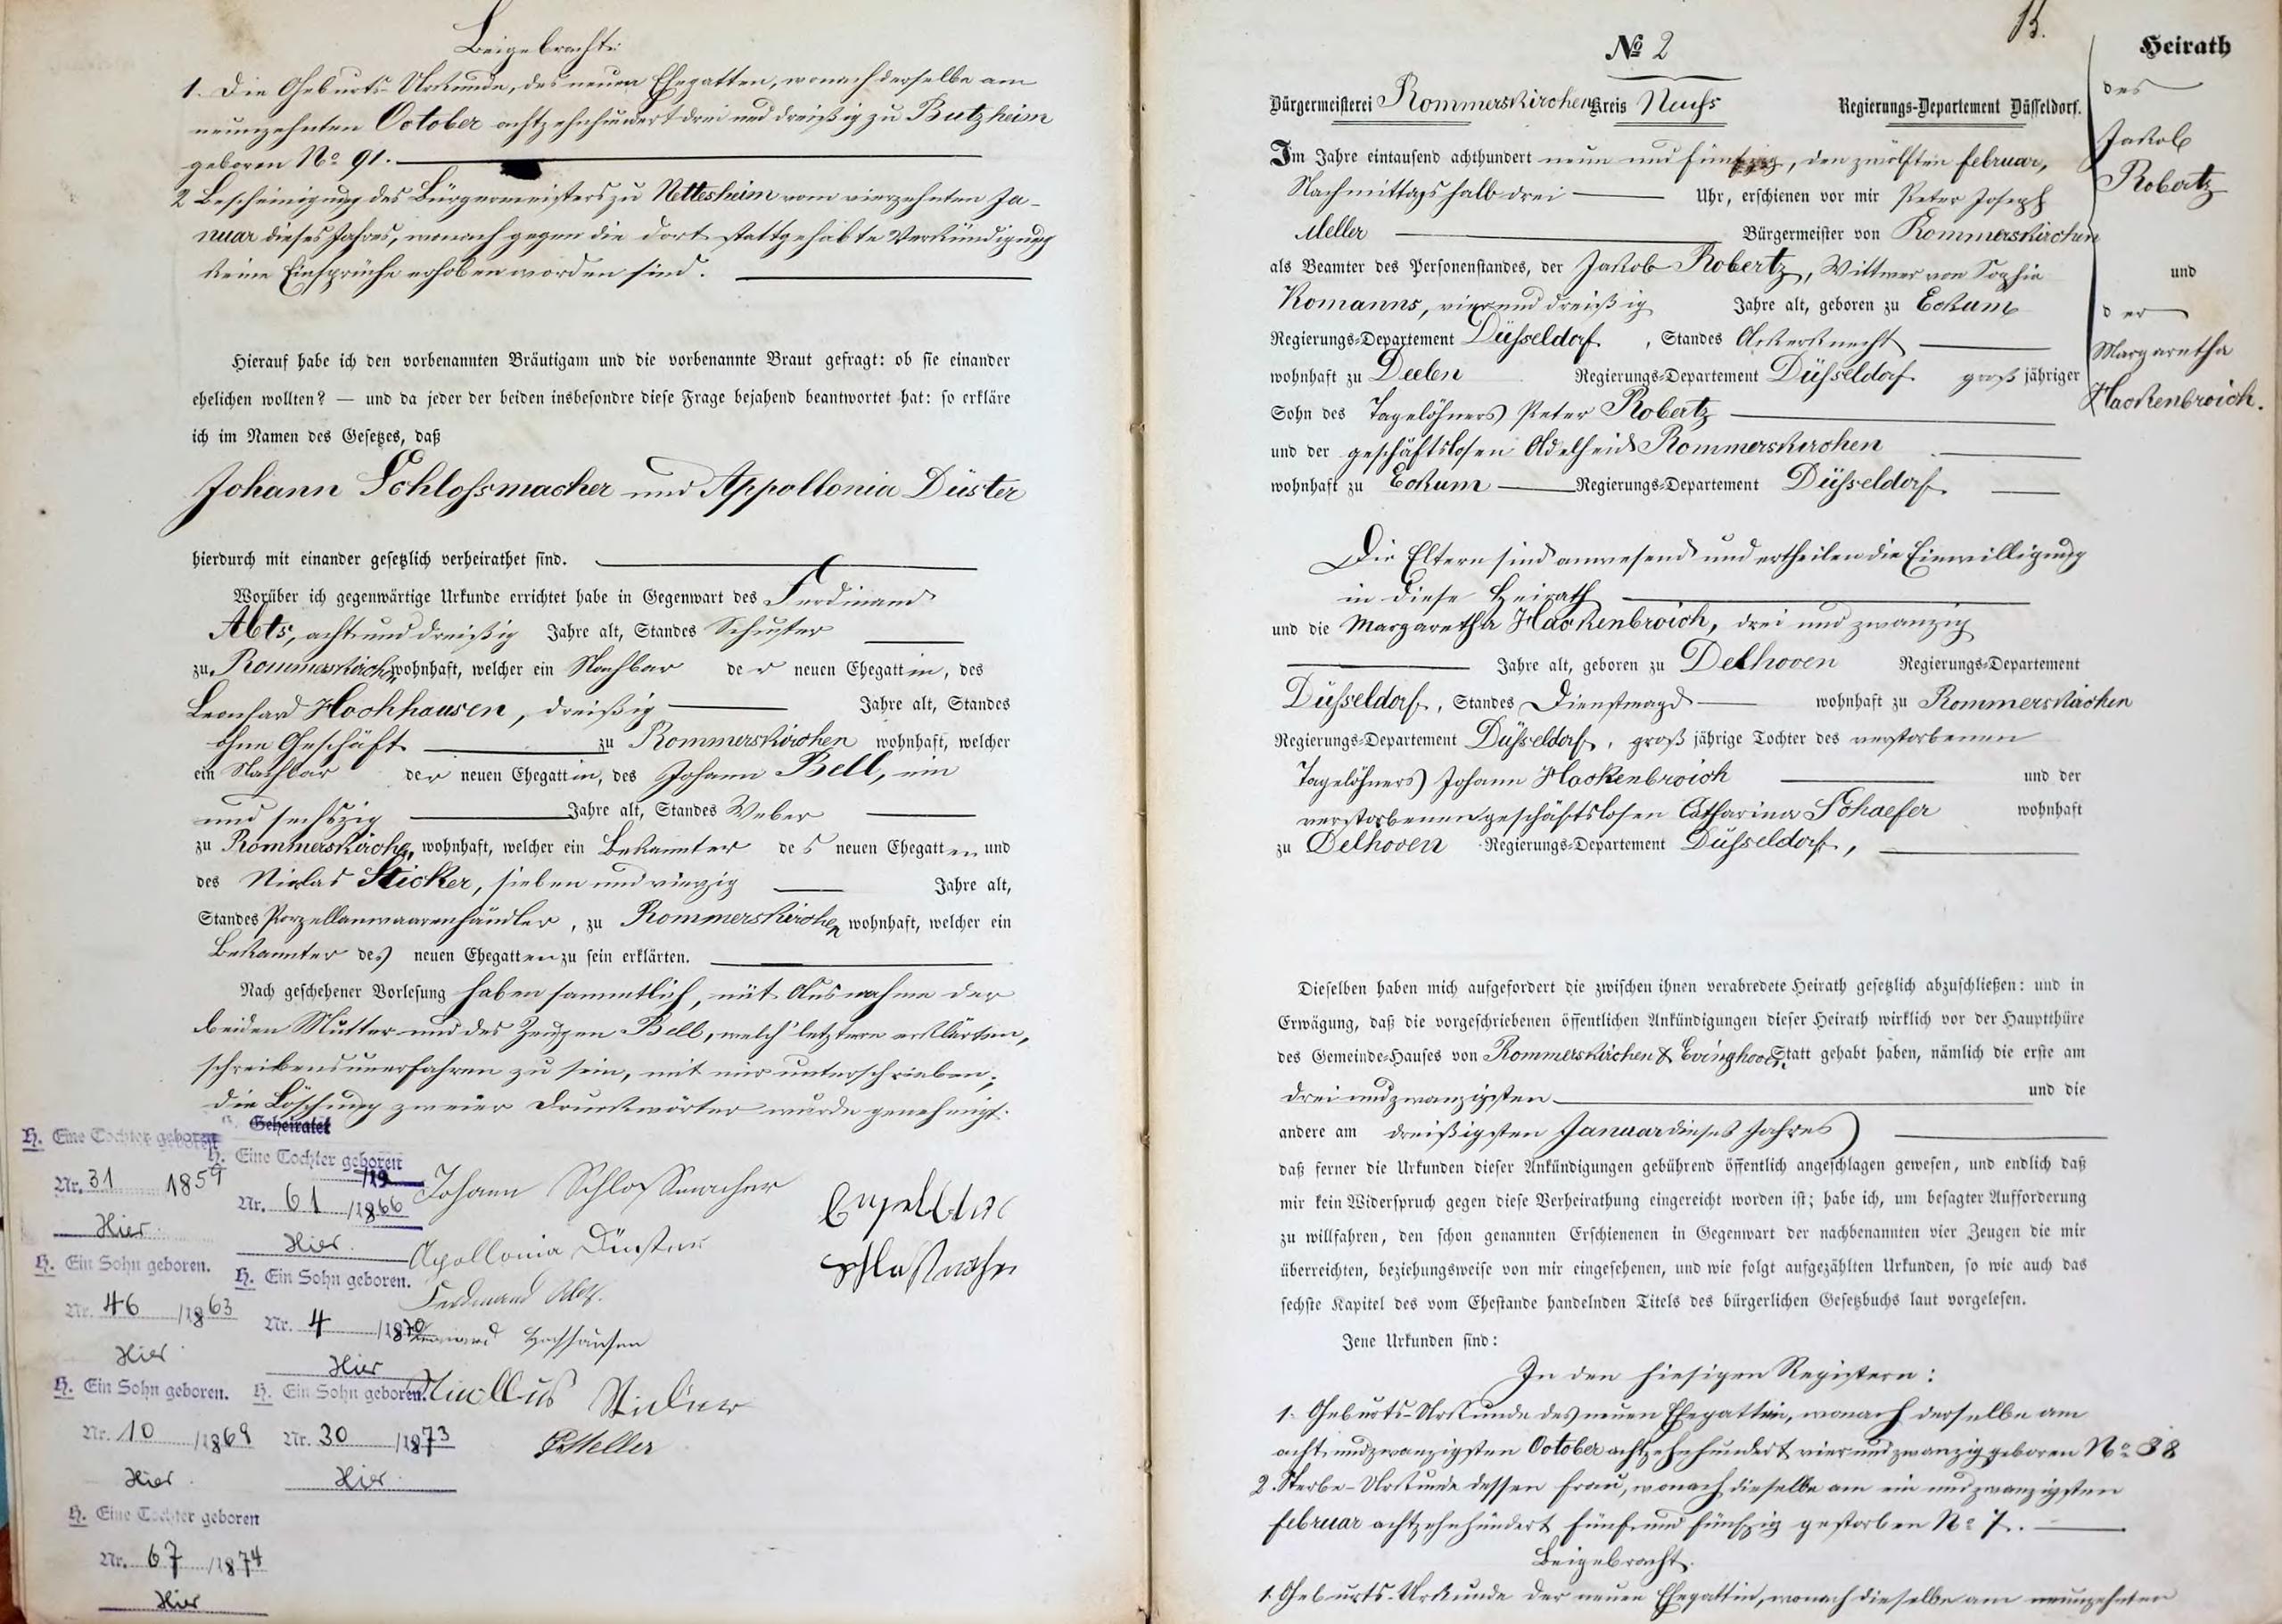 Beigebracht:
1. Die Geburts-Urkunde, des neuen Ehegatten, wonach derselbe am
neunzehnten October achtzehnhundert drei und dreißig zu Butzheim
geboren No 91.
2 Bescheinigung des Bürgermeisters zu Nettesheim vom vierzehnten Ja-
nuar dieses Jahres, wonach gegen die dort stattgehabte Verkündigung
keine Einsprüche erhoben worden sind.
Hierauf habe ich den vorbenannten Bräutigam und die vorbenannte Braut gefragt: ob sie einander
ehelichen wollten? — und da jeder der beiden insbesondre diese Frage bejahend beantwortet hat: so erkläre
ich im Namen des Gesetzes, daß
Johann Schlossmacher und Appollonia Düster
hierdurch mit einander gesetzlich verheirathet sind.
Worüber ich gegenwärtige Urkunde errichtet habe in Gegenwart des Ferdinand
Abts, acht und dreißig Jahre alt, Standes Schuster
zu Rommerskirchen wohnhaft, welcher ein Nachbar der neuen Ehegattin, des
Leonhard Hochhausen, dreißig Jahre alt, Standes
ohne Geschäft zu Rommerskirchen wohnhaft, welcher
ein Nachbar der neuen Ehegattin, des Johann Bell, ein
und sechszig Jahre alt, Standes Weber
zu Rommerskirchen wohnhaft, welcher ein Bekannter des neuen Ehegatten und
des Niclas Sticker, sieben und vierzig Jahre alt,
Standes Porzellanwaarenhändler, zu Rommerskirchen wohnhaft, welcher ein
Bekannter des neuen Ehegatten zu sein erklärten.
Nach geschehener Vorlesung haben sammtlich, mit Ausnahme der
beiden Mutter und des Zeugen Bell, welch letztere erklärten,
schreibensunerfahren zu sein, mit mir unterschrieben;
die Löschung zweier Druckwörter wurde genehmigt.
Geheiratet
H. Eine Tochter geboren
Nr. 31 1859
Hier
H. Eine Tochter geboren
Nr. 61 /1866
Hier.
H. Ein Sohn geboren.
Nr. 46 /1863
Hier
H. Ein Sohn geboren.
Nr. 4 /1870
Hier
H. Ein Sohn geboren.
Nr. 10 /1869
Hier.
H. Ein Sohn geboren.
Nr. 30 /1873
Hier.
H. Eine Tochter geboren
Nr. 67 /1874
Hier
Johann Schlossmacher
Apollonia Düster
Ferdinand Abts.
Hochhausen
PMeller
No 2
15.
Bürgermeisterei Rommerskirchen Kreis Neuss Regierungs-Departement Düsseldorf.
Im Jahre eintausend achthundert neun und fünfzig, den zwölften Februar,
Nachmittags halb drei Uhr, erschienen vor mir Peter Joseph
Meller Bürgermeister von Rommerskirchen
als Beamter des Personenstandes, der Jakob Robertz, Wittwer von Sophia
Komanns, vier und dreißig Jahre alt, geboren zu Eckum
Regierungs-Departement Düsseldorf, Standes Ackerknecht
wohnhaft zu Deelen Regierungs-Departement Düsseldorf großjähriger
Sohn des Tagelöhners Peter Robertz
und der geschäftslosen Adelheid Rommerskirchen
wohnhaft zu Eckum Regierungs-Departement Düsseldorf.
Die Eltern sind anwesend und ertheilen die Einwilligung
in diese Heirath
und die Margaretha Hackenbroich, drei und zwanzig
Jahre alt, geboren zu Delhoven Regierungs-Departement
Düsseldorf, Standes Dienstmagd wohnhaft zu Rommerskirchen
Regierungs-Departement Düsseldorf, großjährige Tochter des verstorbenen
Tagelöhners Johann Hackenbroich und der
verstorbenen geschäftslosen Catharina Schaefer wohnhaft
zu Delhoven Regierungs-Departement Düsseldorf,
Dieselben haben mich aufgefordert die zwischen ihnen verabredete Heirath gesetzlich abzuschließen: und in
Erwägung, daß die vorgeschriebenen öffentlichen Ankündigungen dieser Heirath wirklich vor der Hauptthüre
des Gemeinde-Hauses von Rommerskirchen & Evinghoven Statt gehabt haben, nämlich die erste am
drei und zwanzigsten und die
andere am dreißigsten Januar dieses Jahres
daß ferner die Urkunden dieser Ankündigungen gebührend öffentlich angeschlagen gewesen, und endlich daß
mir kein Widerspruch gegen diese Verheirathung eingereicht worden ist; habe ich, um besagter Aufforderung
zu willfahren, den schon genannten Erschienenen in Gegenwart der nachbenannten vier Zeugen die mir
überreichten, beziehungsweise von mir eingesehenen, und wie folgt aufgezählten Urkunden, so wie auch das
sechste Kapitel des vom Ehestande handelnden Titels des bürgerlichen Gesetzbuchs laut vorgelesen.
Jene Urkunden sind:
In den hiesigen Registern:
1. Geburts-Urkunde des neuen Ehegatten, wonach derselbe am
acht und zwanzigsten October achtzehnhundert vier und zwanzig geboren No 88
2. Sterbe-Urkunde dessen Frau, wonach dieselbe am ein und zwanzigsten
Februar achtzehnhundert fünf und fünfzig gestorben No 7.
Beigebracht.
1. Geburts-Urkunde der neuen Ehegattin, wonach dieselbe am neunzehnten
Heirath
des
Jakob
Robertz
und
der
Margaretha
Hackenbroich.